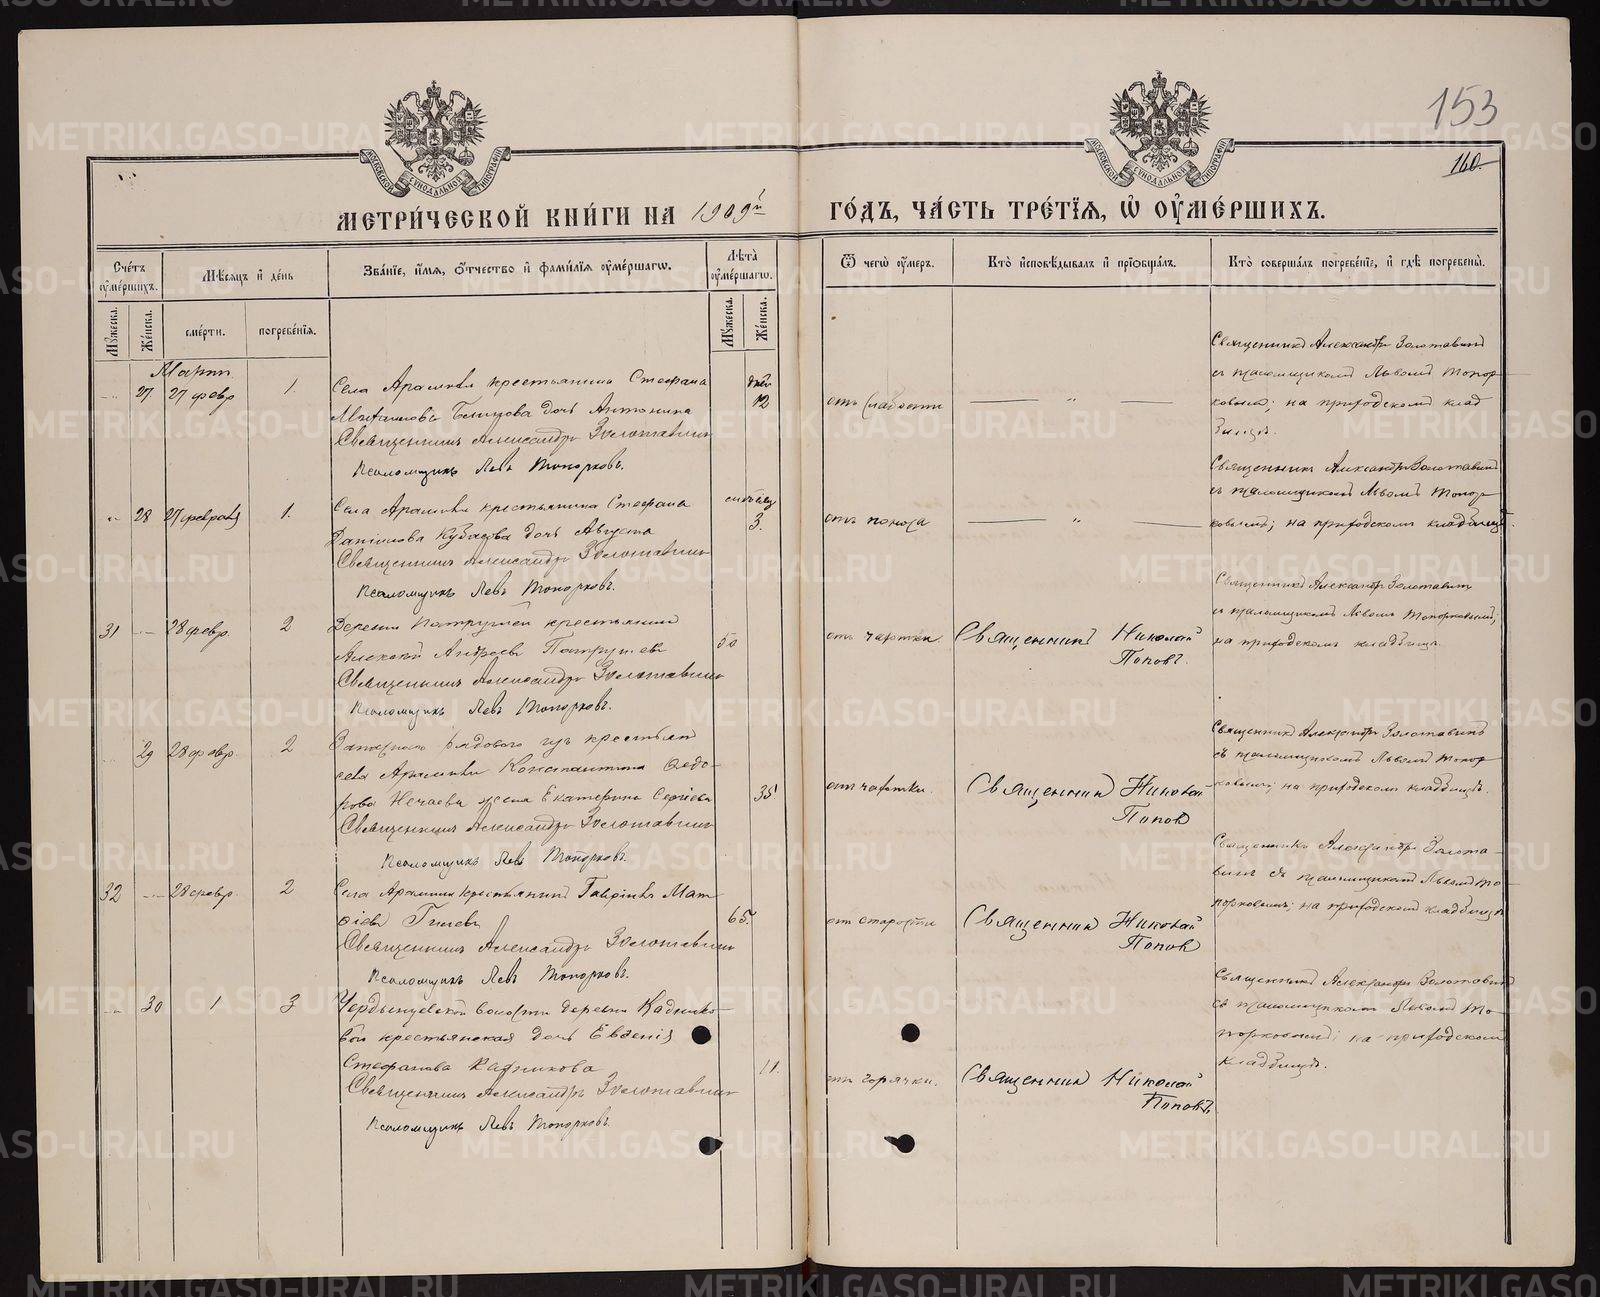 153
160.
МЕТРИ́ЧЕСКОЙ КНИ́ГИ НА 1909й ГО́ДЪ, ЧА́СТЬ ТРЕ́ТІѦ, Ѡ҆ ОУ҆МЕ́РШИХЪ.
Сче́тъ оу҆ме́ршихъ.
Мꙋ́жеска.
Же́нска.
Мѣ́сяцъ и҆ де́нь
сме́рти.
погребе́нія.
Зва́ніе, и҆́мя, ѻ҆́тчество и҆ фами́лія оу҆ме́ршагѡ.
Лѣ́та оу҆ме́ршагѡ.
Мꙋ́жеска.
Же́нска.
Ѿ чегѡ̀ оу҆́меръ.
Кто̀ и҆сповѣ́дывалъ и҆ прїѡбща́лъ.
Кто̀ соверша́лъ погребе́ніе, и҆ гдѣ̀ погребены̀.
Мартъ
27 27 февр 1
Села Арамили крестьянина Стефана
дочь Антонина
Священникъ Александръ Золотавинъ
Псаломщикъ Левъ Топорковъ.
дней
12
отъ слабости
Священникъ Александръ Золотавинъ
съ псаломщикомъ Львомъ Топор
ковымъ; на приходскомъ клад
бищѣ.
28 27 февраля 1.
Села Арамили крестьянина Стефана
дочь Августа
Священникъ Александръ Золотавинъ
Псаломщикъ Левъ Топорковъ.
3.
отъ поноса
Священникъ Александръ Золотавинъ
съ псаломщикомъ Львомъ Топор
ковымъ; на приходскомъ кладбищѣ.
31 28 февр. 2
Деревни Патрушей крестьянинъ
Алексѣй Андреевъ Патрушевъ
Священникъ Александръ Золотавинъ
Псаломщикъ Левъ Топорковъ.
50
отъ чахотки
Священникъ Николай
Поповъ.
Священникъ Александръ Золотавинъ
съ псаломщикомъ Львомъ Топорковымъ;
на приходскомъ кладбищѣ.
29 28 февр. 2
Запаснаго рядового изъ крестьянъ
села Арамили Константина Ѳедо-
рова Нечаева жена Екатерина Сергіева
Священникъ Александръ Золотавинъ
Псаломщикъ Левъ Топорковъ.
35
отъ чахотки.
Священникъ Николай
Поповъ
Священникъ Александръ Золотавинъ
съ псаломщикомъ Львомъ Топор
ковымъ; на приходскомъ кладбищѣ.
32 28 февр. 2
Села Арамили крестьянинъ Гавріилъ Мат-
ѳіевъ
Священникъ Александръ Золотавинъ
Псаломщикъ Левъ Топорковъ.
65.
отъ старости
Священникъ Николай
Поповъ
Священникъ Александръ Золота-
винъ съ псаломщикомъ Львомъ То-
порковымъ; на приходскомъ кладбищѣ
30 1 3
волости деревни Каднико-
вой крестьянская дочь Евгенія
Стефанова Кадникова
Священникъ Александръ Золотавинъ
Псаломщикъ Левъ Топорковъ.
11.
отъ горячки.
Священникъ Николай
Поповъ
Священникъ Александръ Золотавинъ
съ псаломщикомъ Львомъ То-
порковымъ; на приходскомъ
кладбищѣ.
METRIKI.GASO-URAL.RU